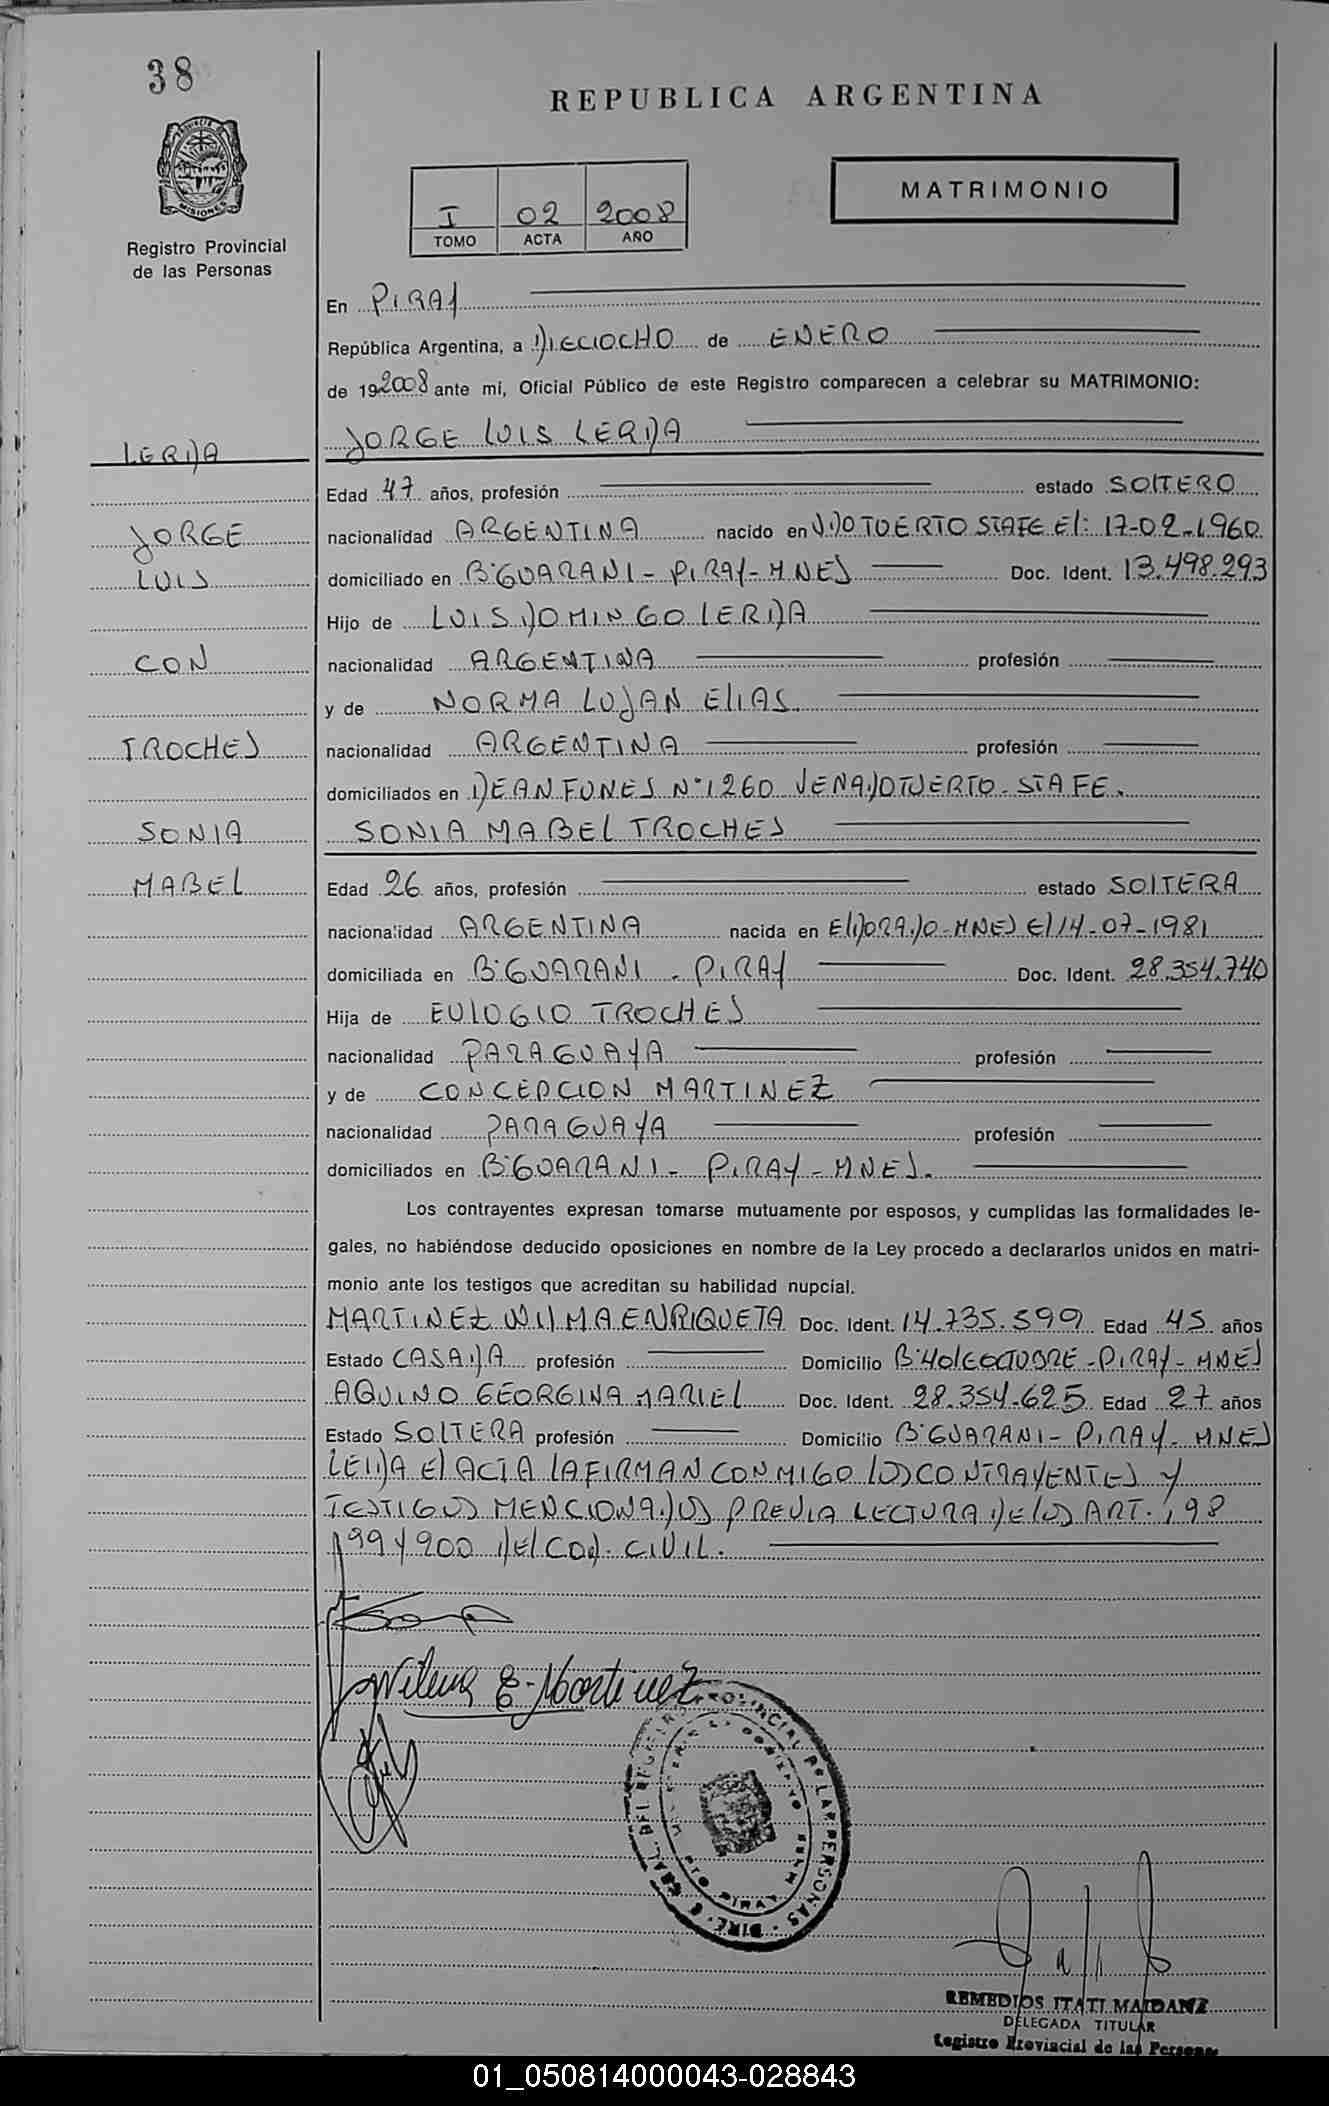 38
REPUBLICA ARGENTINA
MISIONES
Registro Provincial
de las Personas
I 02 2008
TOMO ACTA AÑO
MATRIMONIO
En PIRAY
República Argentina, a DIECIOCHO de ENERO
de 192008 ante mi, Oficial Público de este Registro comparecen a celebrar su MATRIMONIO:
LERDA
JORGE LUIS LERDA
Edad 47 años, profesión estado SOLTERO
JORGE
nacionalidad ARGENTINA nacido en V.DO TUERTO STAFE El: 17-02-1960
LUIS
domiciliado en Bº GUARANI - PIRAY - MNES Doc. Ident. 13.498.293
Hijo de LUIS DOMINGO LERDA
CON
nacionalidad ARGENTINA profesión
y de NORMA LUJAN ELIAS.
TROCHES
nacionalidad ARGENTINA profesión
domiciliados en DEAN FUNES Nº 1260 VENADO TUERTO - STA FE.
SONIA
SONIA MABEL TROCHES
MABEL
Edad 26 años, profesión estado SOLTERA
nacionalidad ARGENTINA nacida en ELDORADO - MNES El 14-07-1981
domiciliada en Bº GUARANI - PIRAY Doc. Ident. 28.354.740
Hija de EULOGIO TROCHES
nacionalidad PARAGUAYA profesión
y de CONCEPCION MARTINEZ
nacionalidad PARAGUAYA profesión
domiciliados en Bº GUARANI - PIRAY - MNES.
Los contrayentes expresan tomarse mutuamente por esposos, y cumplidas las formalidades le-
gales, no habiéndose deducido oposiciones en nombre de la Ley procedo a declararlos unidos en matri-
monio ante los testigos que acreditan su habilidad nupcial.
MARTINEZ WILMA ENRIQUETA Doc. Ident. 14.735.599 Edad 45 años
Estado CASADA profesión Domicilio Bº OCTUBRE - PIRAY - MNES
AQUINO GEORGINA MARIEL Doc. Ident. 28.354.625 Edad 27 años
Estado SOLTERA profesión Domicilio Bº GUARANI - PIRAY - MNES
LEIDA El ACTA LA FIRMAN CONMIGO LOS CONTRAYENTES Y
TESTIGOS MENCIONADOS PREVIA LECTURA DE LOS ART. 198
199 Y 200 DEL COD. CIVIL.
Wilma E. Martinez
DIRE. GRAL. DEL REGISTRO PROVINCIAL DE LAS PERSONAS
REMEDIOS ITATI MAIDANZ
DELEGADA TITULAR
Registro Provincial de las Personas
01_050814000043-028843